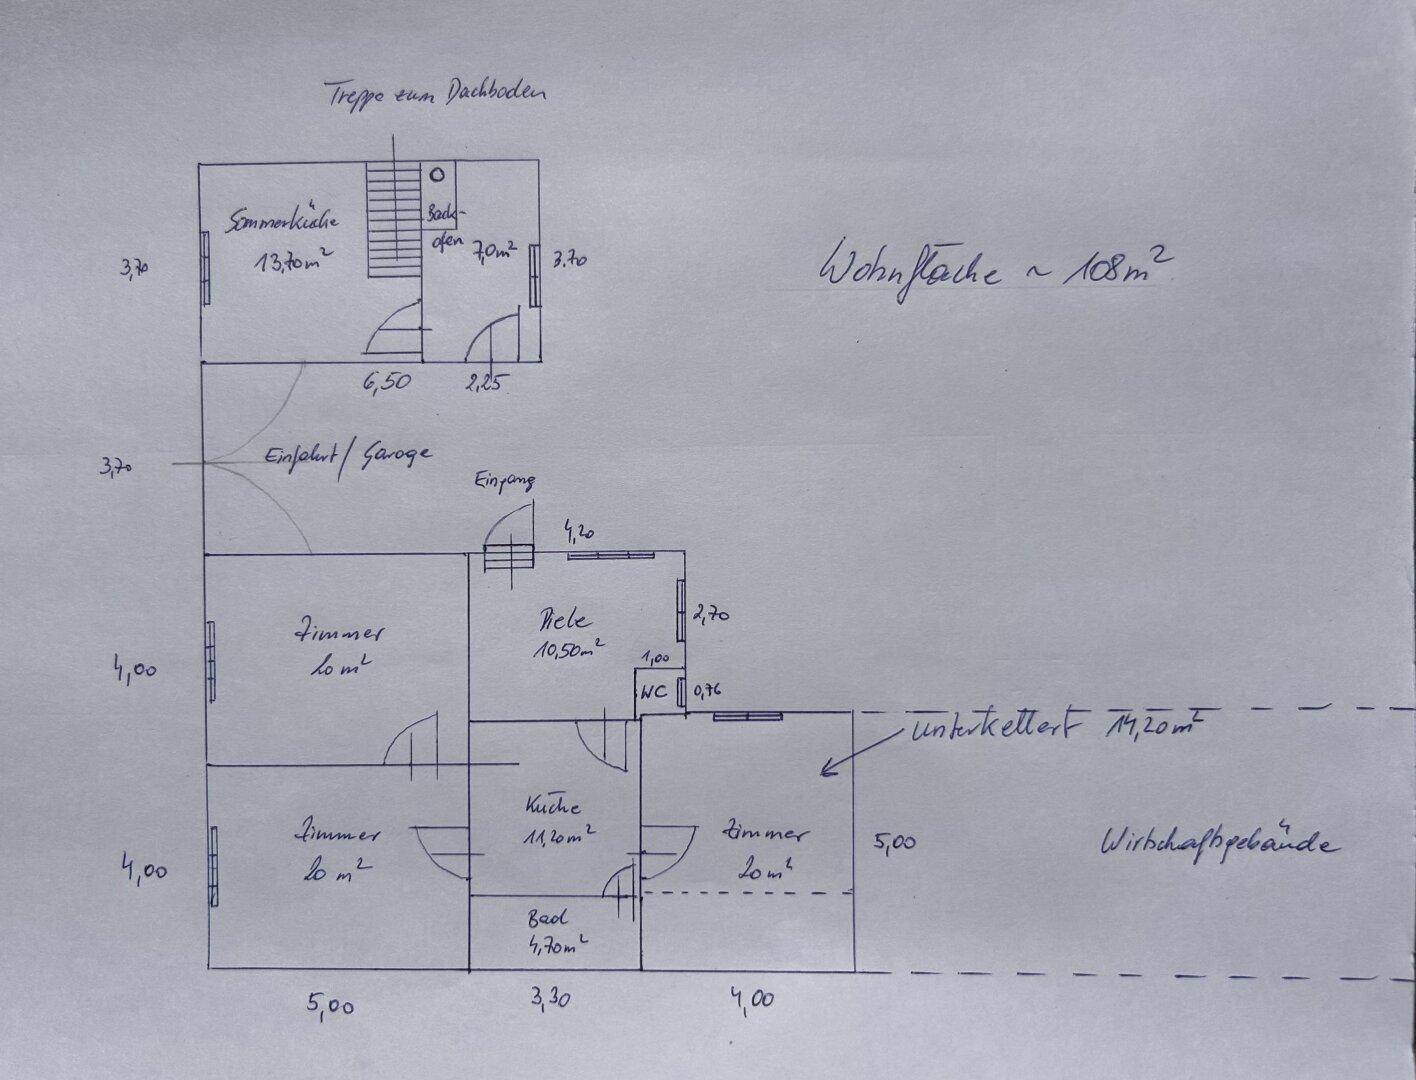 Treppe zum Dachboden
Sommerküche
13,70m²
Back-
ofen
7,0m²
3,70
3.70
Wohnfläche ~ 108m²
6,50
2,25
Einfahrt/Garage
3,70
Eingang
4,20
Zimmer
20m²
Diele
10,50m²
2,70
1,00
WC
0,76
4,00
unterkellert 14,20m²
Zimmer
20m²
Küche
11,20m²
Zimmer
20m²
4,00
5,00
Wirtschaftsgebäude
Bad
4,70m²
5,00
3,30
4,00